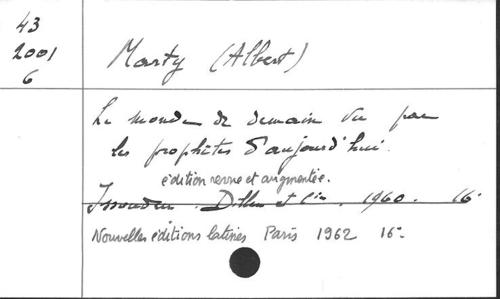 43
2001
6
Marty (Albert)
Le monde de demain vu par
les prophètes d'aujourd'hui.
édition revue et augmentée.
Issoudun. Dillen et Cie. 1960. 16°
Nouvelles éditions latines Paris 1962 16°